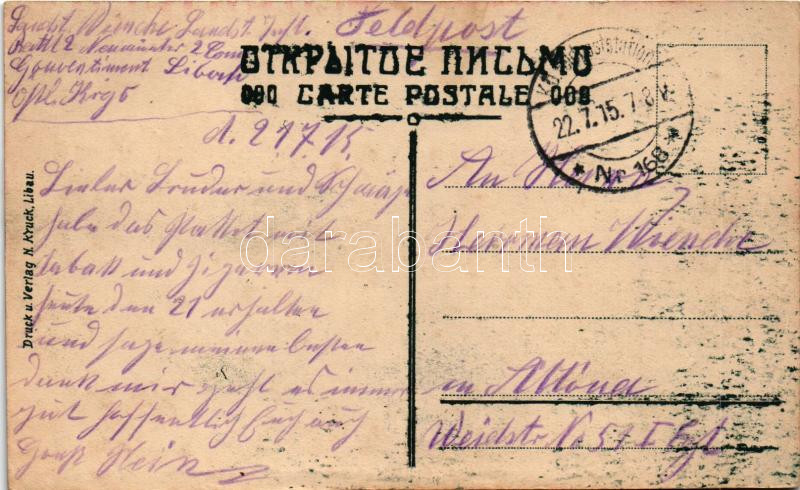 Landst. Wiencke Landst. Inft.
Feldpost
Battl 2 Neumünster 2 Com
Gouvernement Libau
Ostl. Krgs
ОТКРЫТОЕ ПИСЬМО
CARTE POSTALE
22.7.15. 7-8 V.
* Nr. 168 *
d. 21 7. 15.
Lieber Bruder und
habe das Packet mit
Tabak und Zigarren
heute den 21 erhalten
und sage meinen besten
Dank mir geht es immer
gut hoffentlich Euch auch
Gruß Hein
An Herrn
Herrman Wiencke
in Altona
Weidstr. No 51 I Etg.
Druck u. Verlag N. Kruck, Libau.
darabanth